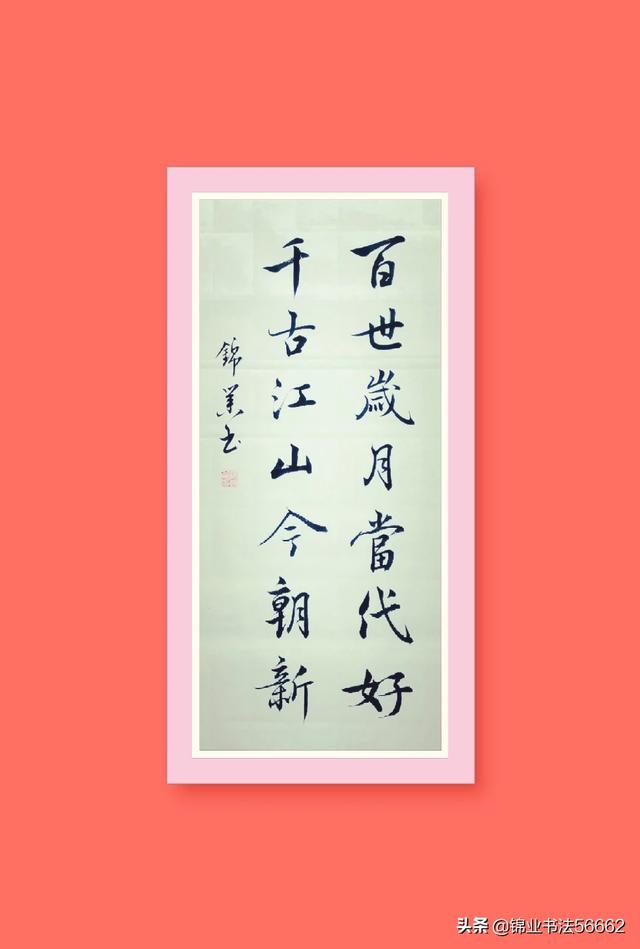 百世歲月當代好
千古江山今朝新
錦業书
头条 @锦业书法56662